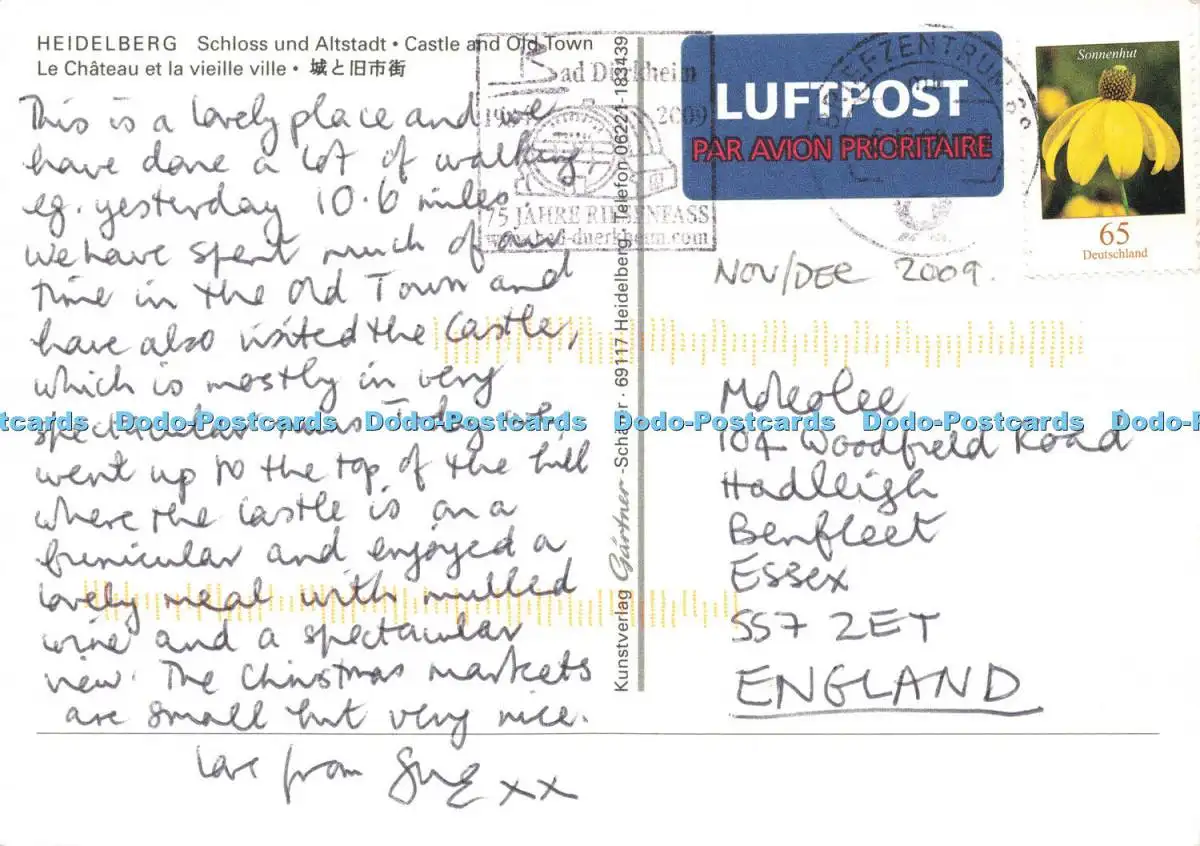 HEIDELBERG Schloss und Altstadt • Castle and Old Town
Le Château et la vieille ville • 城と旧市街
This is a lovely place and we
have done a lot of walking
eg. yesterday 10.6 miles
we have spent much of our
time in the Old Town and
have also visited the Castle,
which is mostly in very
spectacular ruins. Today we
went up to the top of the hill
where the castle is on a
funicular and enjoyed a
lovely meal with mulled
wine and a spectacular
view. The Christmas markets
are small but very nice.
Love from Sue xx
Kunstverlag Gärtner-Schäfer • 69117 Heidelberg, Telefon 06221-183439
Bad Dürkheim
2009
75 JAHRE RIESENFASS
www.bad-duerkheim.com
LUFTPOST
PAR AVION PRIORITAIRE
BRIEFZENTRUM
Sonnenhut
65
Deutschland
NOV/DEC 2009.
104 Woodfield Road
Hadleigh
Benfleet
Essex
SS7 2ET
ENGLAND
Dodo-Postcards Dodo-Postcards Dodo-Postcards Dodo-Postcards Dodo-Postcards Dodo-Postcards